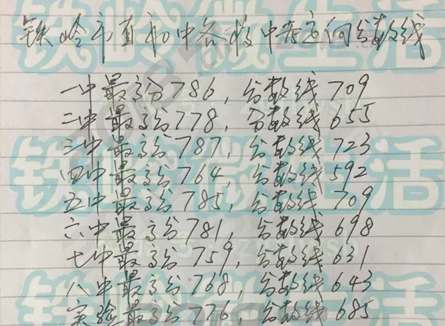 铁岭市直初中各校中考定向分数线
一中最高分786，分数线709
二中最高分778，分数线655
三中最高分787，分数线723
四中最高分764，分数线592
五中最高分785，分数线709
六中最高分781，分数线698
七中最高分759，分数线631
八中最高分768，分数线643
实验最高分776，分数线685